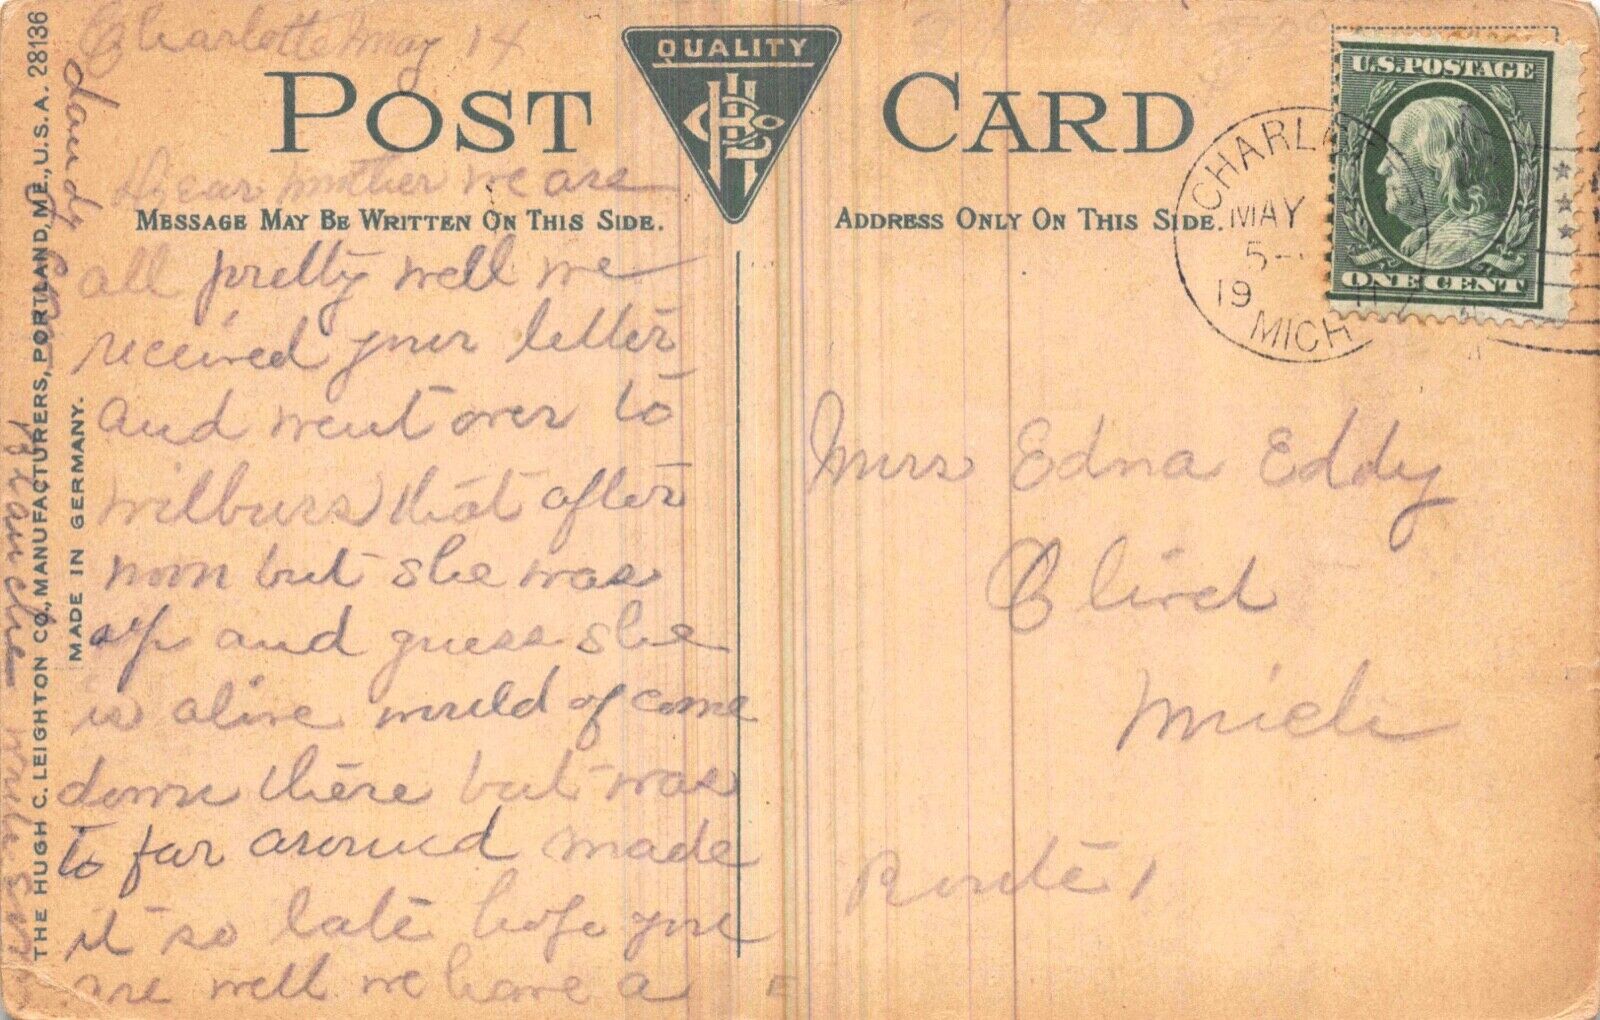 Charlotte May 14
POST CARD
QUALITY
Dear mother we are
MESSAGE MAY BE WRITTEN ON THIS SIDE.
all pretty well we
received your letter
and went over to
wilburs that after
noon but she was
up and guess she
is alive would of come
down there but was
to far around made
it so late hope you
are well we have a
dandy
Blanche
THE HUGH C. LEIGHTON CO., MANUFACTURERS, PORTLAND, ME., U.S.A. 28136
MADE IN GERMANY.
ADDRESS ONLY ON THIS SIDE.
U.S. POSTAGE
ONE CENT
MAY
5-
19
MICH
Mrs Edna Eddy
Mich
Route 1